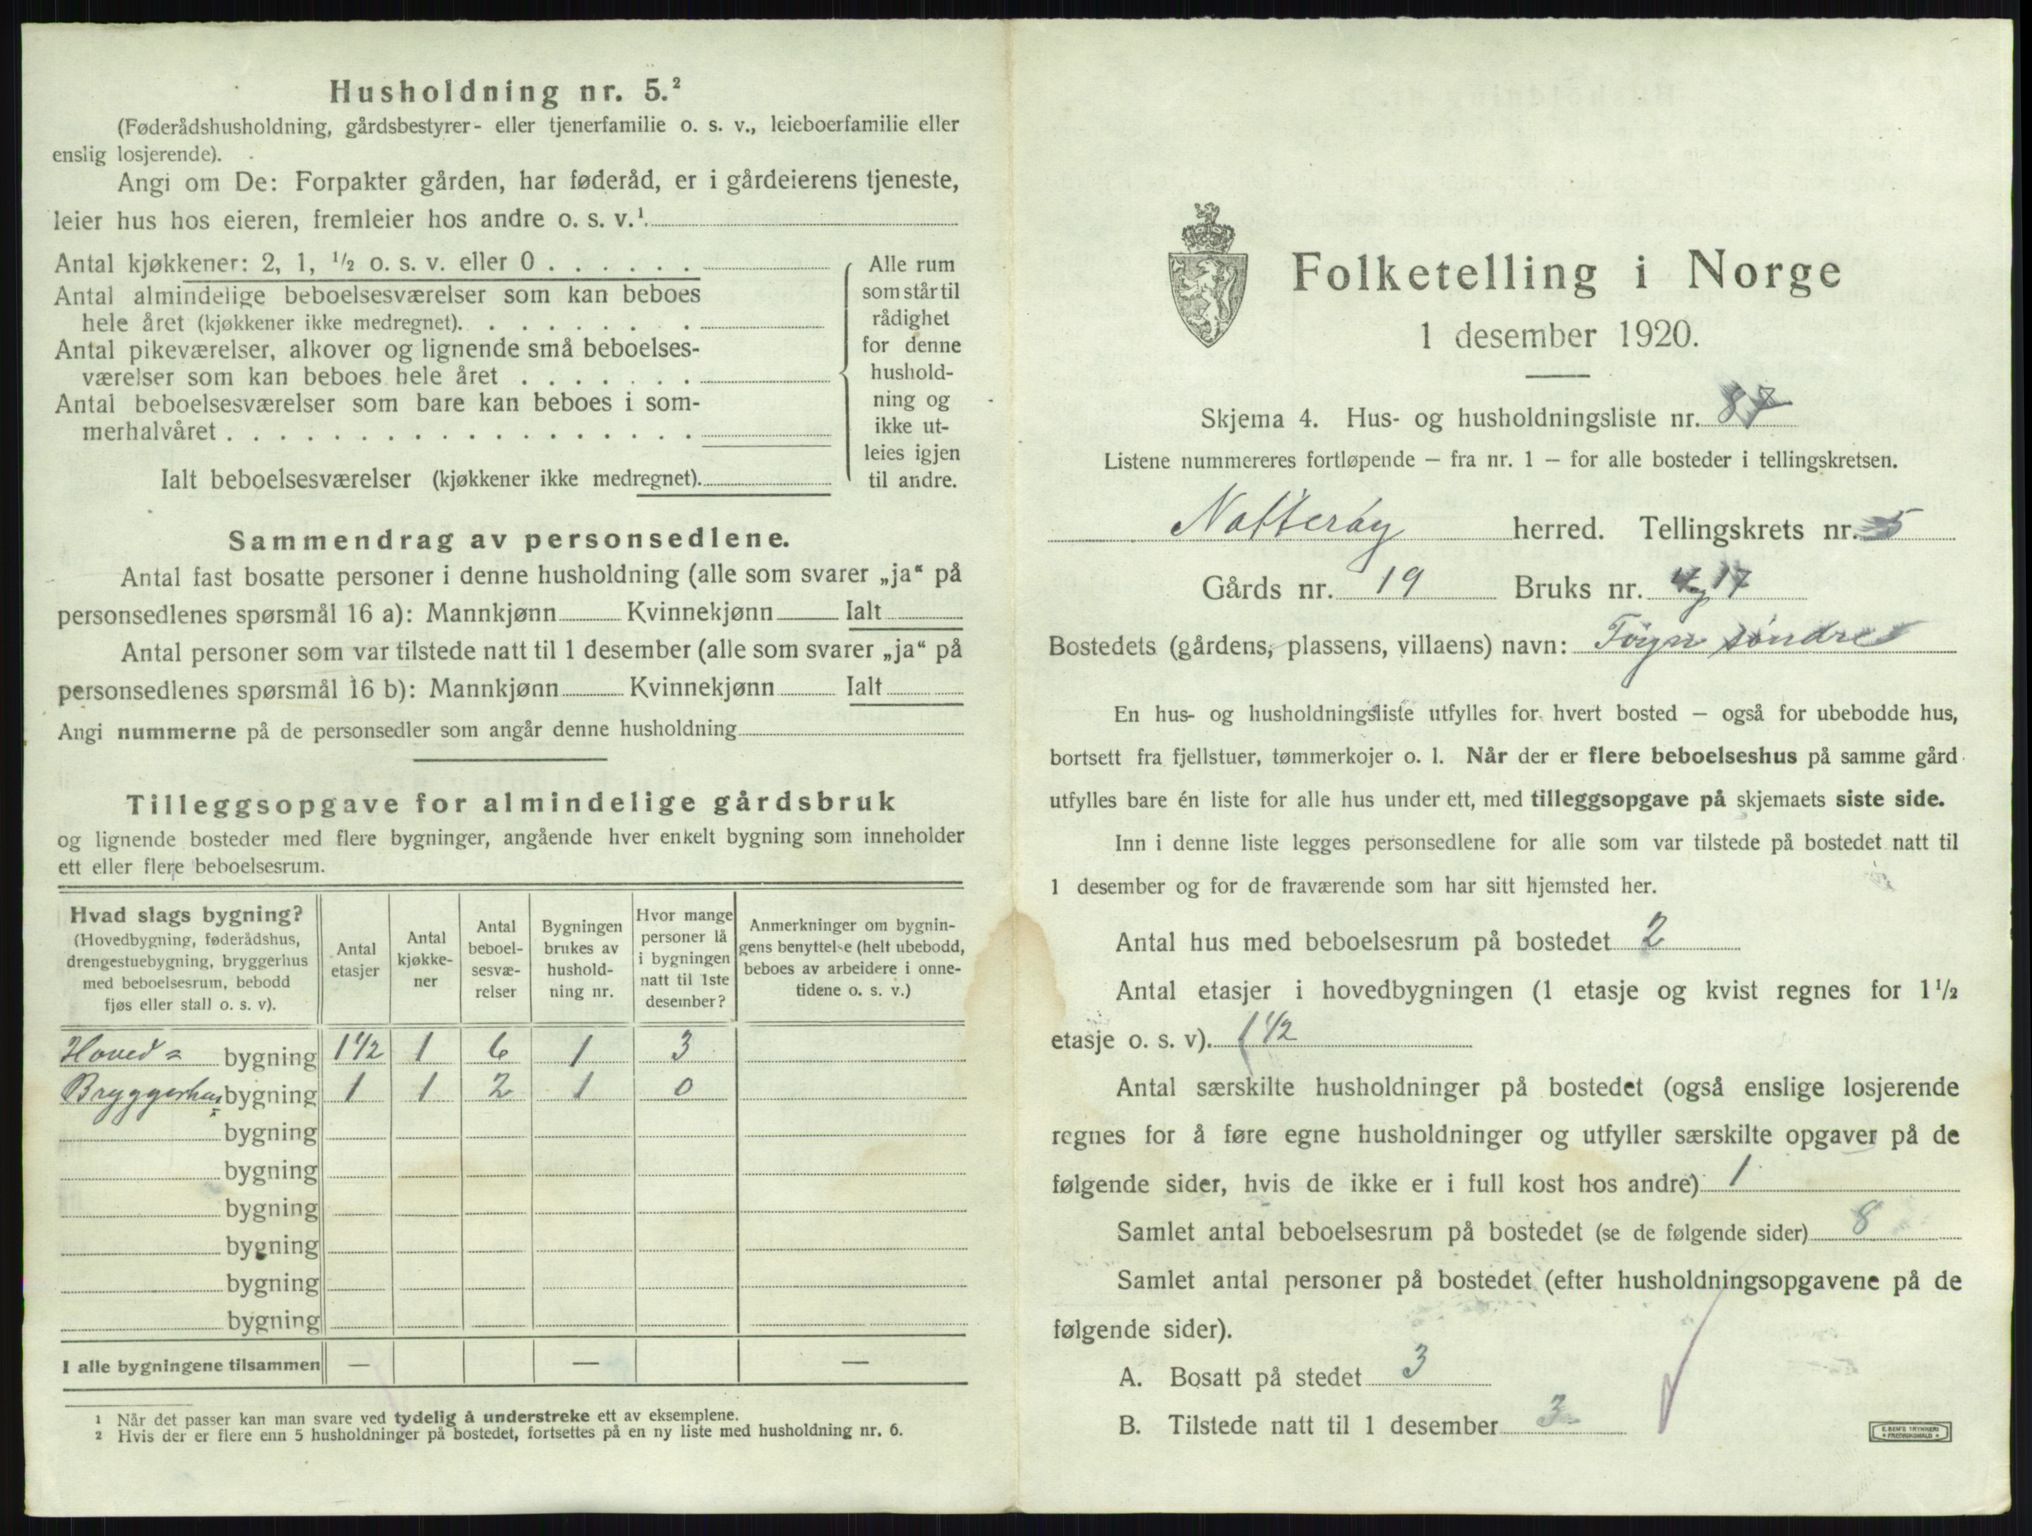 Husholdning nr. 5.²
(Føderådshusholdning, gårdsbestyrer- eller tjenerfamilie o. s. v., leieboerfamilie eller
enslig losjerende).
Angi om De: Forpakter gården, har føderåd, er i gårdeierens tjeneste,
leier hus hos eieren, fremleier hos andre o. s. v.¹
Antal kjøkkener: 2, 1, ½ o. s. v. eller 0 . . . . . .
Antal almindelige beboelsesværelser som kan beboes
hele året (kjøkkener ikke medregnet). . . . . . . .
Antal pikeværelser, alkover og lignende små beboelses-
værelser som kan beboes hele året . . . . . . .
Antal beboelsesværelser som bare kan beboes i som-
merhalvåret . . . . . . . . . . . . . . . . . .
Ialt beboelsesværelser (kjøkkener ikke medregnet).
Alle rum
som står til
rådighet
for denne
hushold-
ning og
ikke ut-
leies igjen
til andre.
Sammendrag av personsedlene.
Antal fast bosatte personer i denne husholdning (alle som svarer „ja“ på
personsedlenes spørsmål 16 a): Mannkjønn Kvinnekjønn Ialt
Antal personer som var tilstede natt til 1 desember (alle som svarer „ja“ på
personsedlenes spørsmål 16 b): Mannkjønn Kvinnekjønn Ialt
Angi nummerne på de personsedler som angår denne husholdning
Tilleggsopgave for almindelige gårdsbruk
og lignende bosteder med flere bygninger, angående hver enkelt bygning som inneholder
ett eller flere beboelsesrum.
Hvad slags bygning?
(Hovedbygning, føderådshus,
drengestuebygning, bryggerhus
med beboelsesrum, bebodd
fjøs eller stall o. s. v).
Antal
etasjer
Antal
kjøkke-
ner
Antal
beboel-
sesvæ-
relser
Bygningen
brukes av
hushold-
ning nr.
Hvor mange
personer lå
i bygningen
natt til 1ste
desember?
Anmerkninger om bygnin-
gens benyttelse (helt ubebodd,
beboes av arbeidere i onne-
tidene o. s. v.)
Hoved= bygning 1½ 1 6 1 3
Bryggerhus bygning 1 1 2 1 0
bygning
bygning
bygning
bygning
bygning
bygning
I alle bygningene tilsammen — — —
¹ Når det passer kan man svare ved tydelig å understreke ett av eksemplene.
² Hvis der er flere enn 5 husholdninger på bostedet, fortsettes på en ny liste med husholdning nr. 6.
Folketelling i Norge
1 desember 1920.
Skjema 4. Hus- og husholdningsliste nr.
Listene nummereres fortløpende – fra nr. 1 – for alle bosteder i tellingskretsen.
Nøtterøy herred. Tellingskrets nr. 5
Gårds nr. 19 Bruks nr. 17
Bostedets (gårdens, plassens, villaens) navn: søndre
En hus- og husholdningsliste utfylles for hvert bosted – også for ubebodde hus,
bortsett fra fjellstuer, tømmerkojer o. l. Når der er flere beboelseshus på samme gård
utfylles bare én liste for alle hus under ett, med tilleggsopgave på skjemaets siste side.
Inn i denne liste legges personsedlene for alle som var tilstede på bostedet natt til
1 desember og for de fraværende som har sitt hjemsted her.
Antal hus med beboelsesrum på bostedet 2
Antal etasjer i hovedbygningen (1 etasje og kvist regnes for 1½
etasje o. s. v). 1½
Antal særskilte husholdninger på bostedet (også enslige losjerende
regnes for å føre egne husholdninger og utfyller særskilte opgaver på de
følgende sider, hvis de ikke er i full kost hos andre) 1
Samlet antal beboelsesrum på bostedet (se de følgende sider) 8
Samlet antal personer på bostedet (efter husholdningsopgavene på de
følgende sider).
A. Bosatt på stedet 3
B. Tilstede natt til 1 desember 3